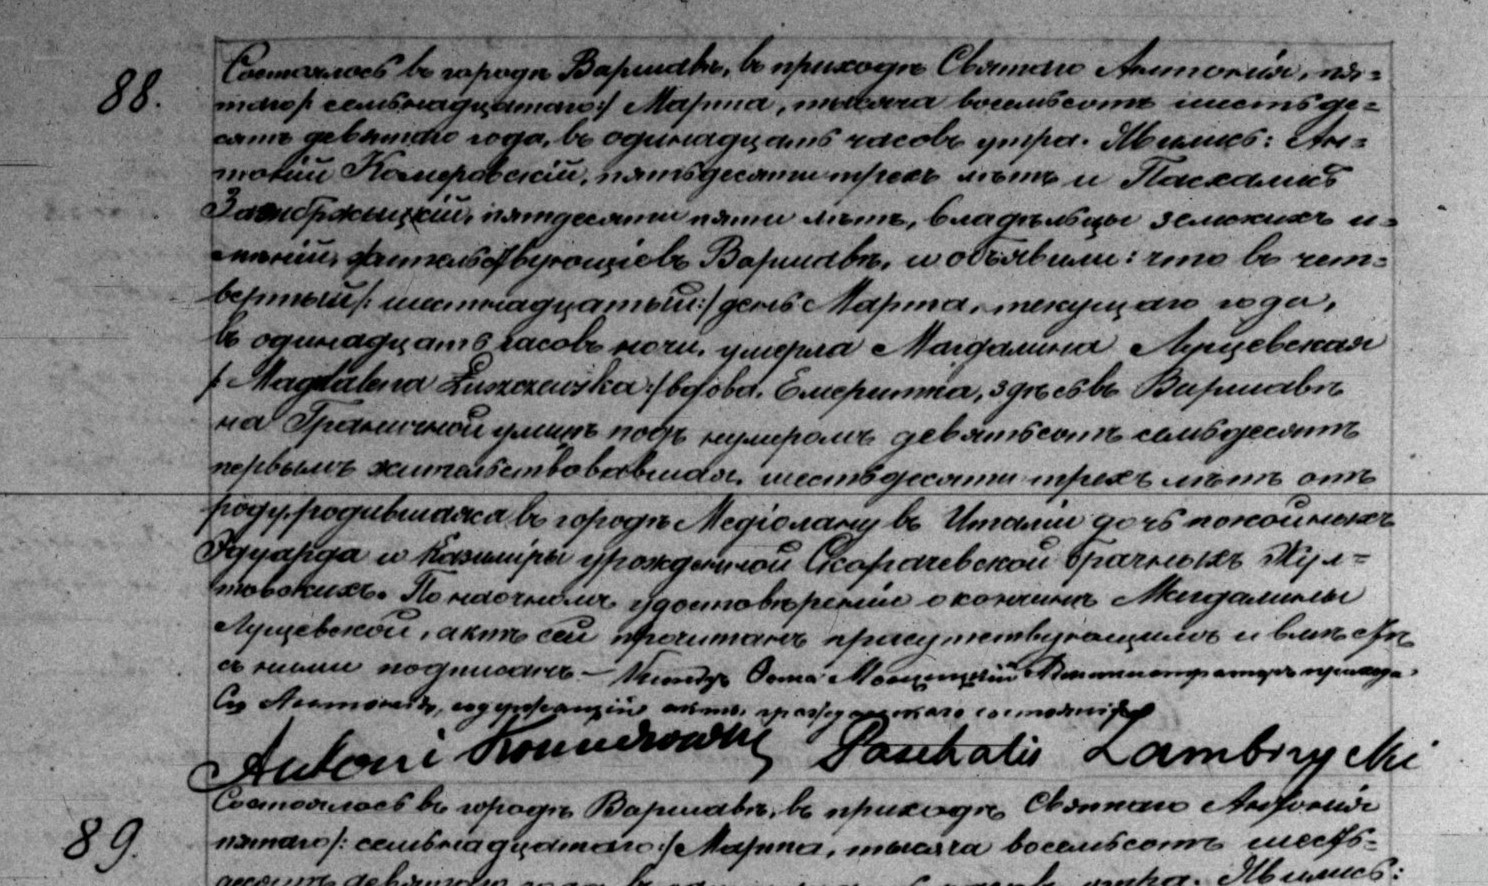 88.
Состоялось въ городѣ Варшавѣ, въ приходѣ Святаго Антонія, пя=
таго /: семьнадцатаго :/ Марта, тысяча восемьсотъ шестьде=
сятъ девятаго года, въ одинадцать часовъ утра. Явились: Ан=
тоній Комеровскій, пятьдесяти трехъ лѣтъ и Пасхалисъ
пятдесяти пяти лѣтъ, владѣльцы земскихъ и=
мѣній, жительствующіе въ Варшавѣ, и объявили: что въ чет=
вертый /: шестнадцатый :/ день Марта, текущаго года,
въ одинадцать часовъ ночи, умерла Магдалина Лущевская
/: Magdalena Łuszczewska :/ вдова, Емеритка, здѣсь въ Варшавѣ
на Граничной улицѣ подъ нумеромъ девятьсотъ семьдесятъ
первымъ жительствовавшая, шестьдесяти трехъ лѣтъ отъ
роду, родившаяся въ городѣ Медіолану въ Италіи дочь покойныхъ
Эдуарда и Казиміры урожденной Скорачевской брачныхъ Жул=
товскихъ. По наочномъ удостовѣреніи о кончинѣ Магдалины
Лущевской, актъ сей прочитанъ присутствующимъ и вмѣстѣ
съ ними подписанъ — Ксендзъ Ѳома Администраторъ прихода
Св Антонія, содержащій акты гражданскаго состоянія
Antoni Komierowski Paschalis Zambrzycki
89.
Состоялось въ городѣ Варшавѣ, въ приходѣ Святаго Антонія
пятаго /: семьнадцатаго :/ Марта, тысяча восемьсотъ шесть=
десятъ девятаго года въ утра. Явились: